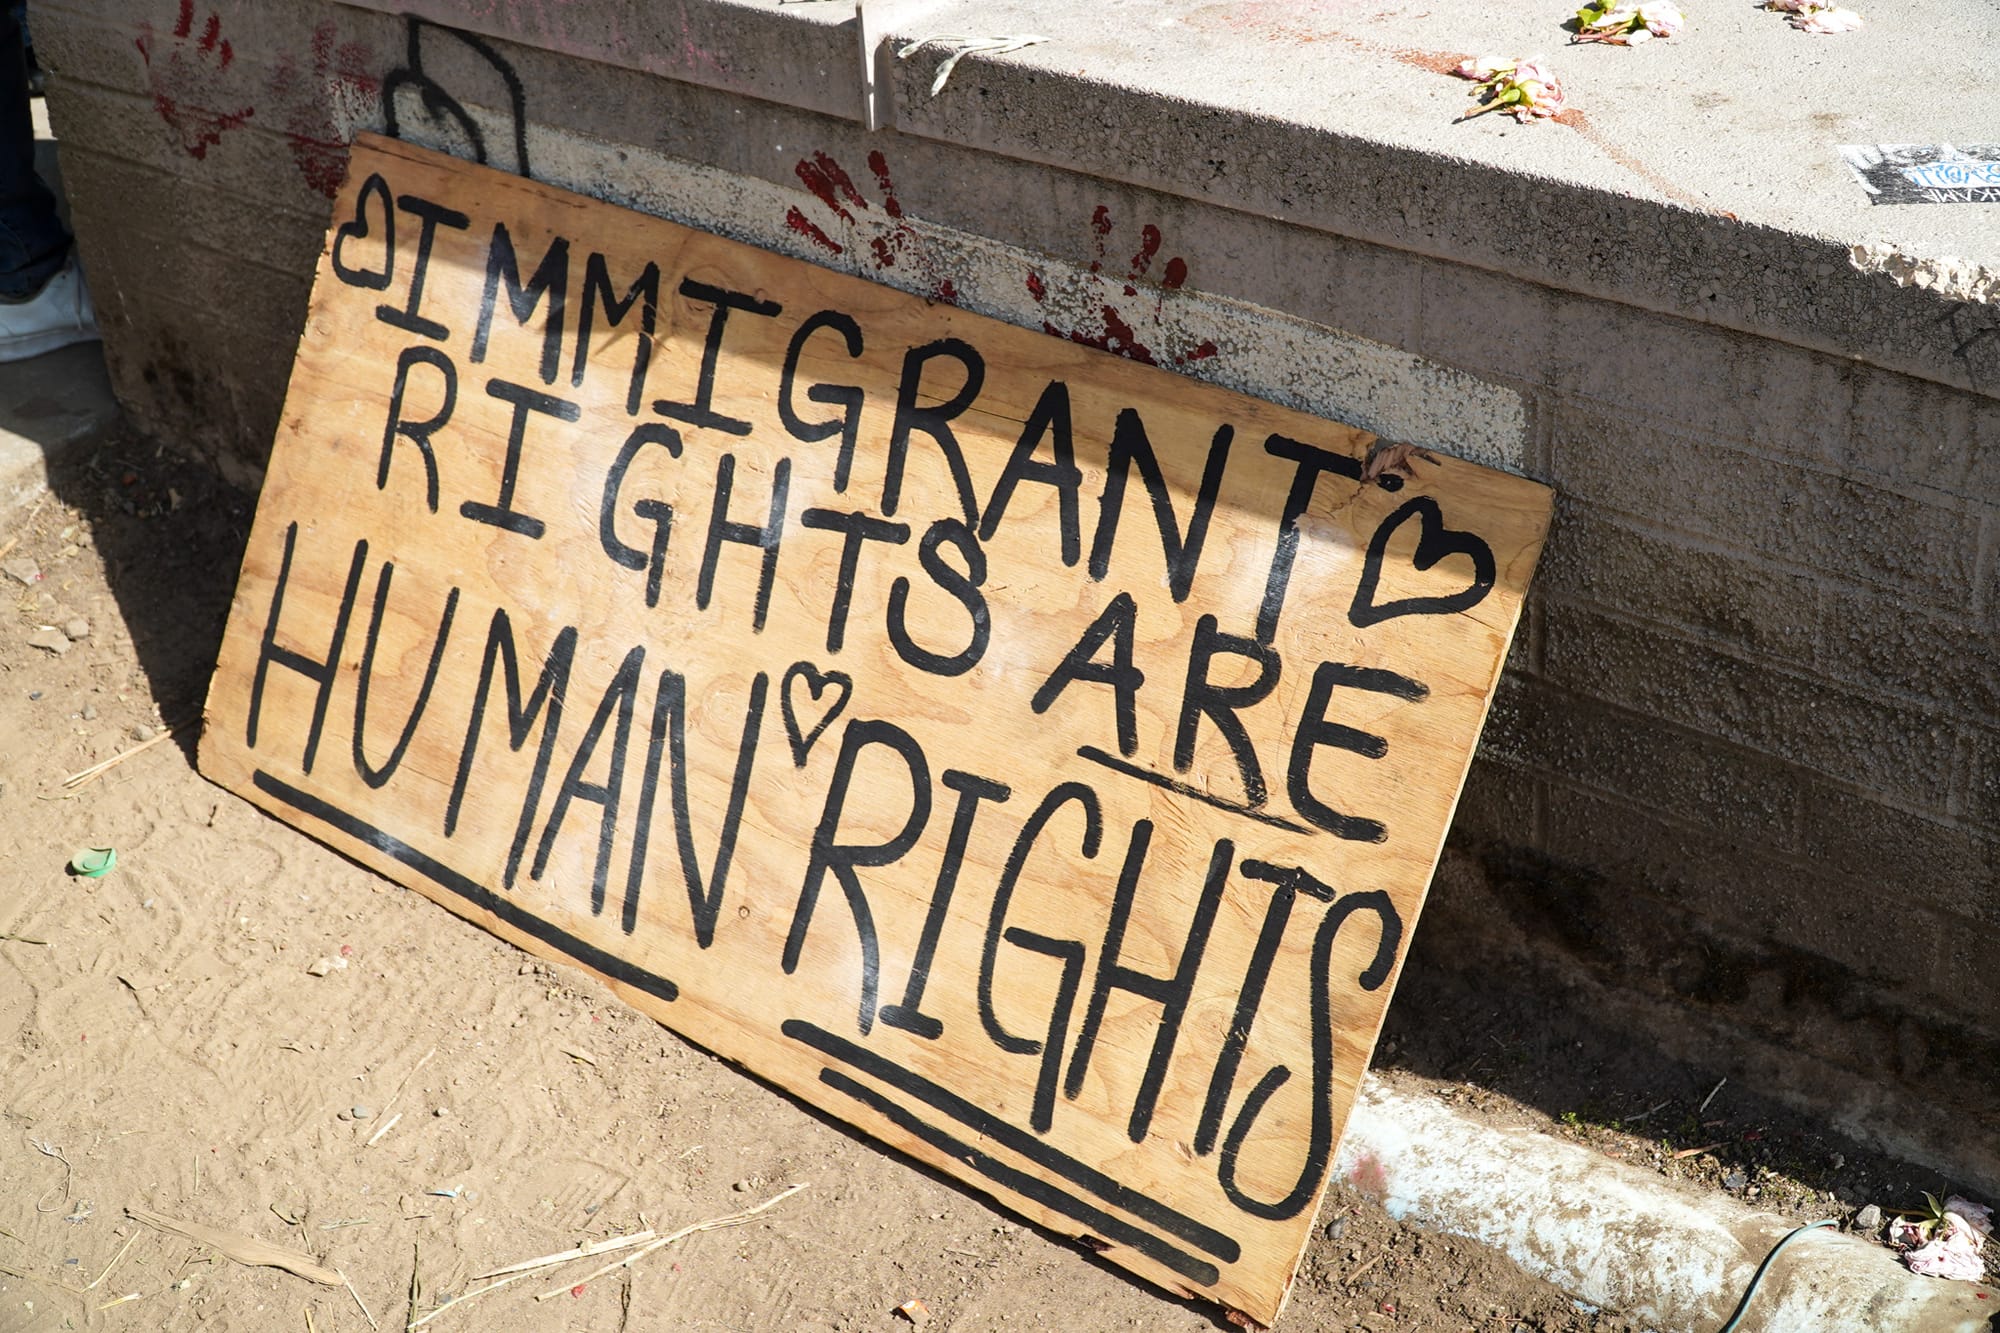 IMMIGRANT
RIGHTS ARE
HUMAN RIGHTS